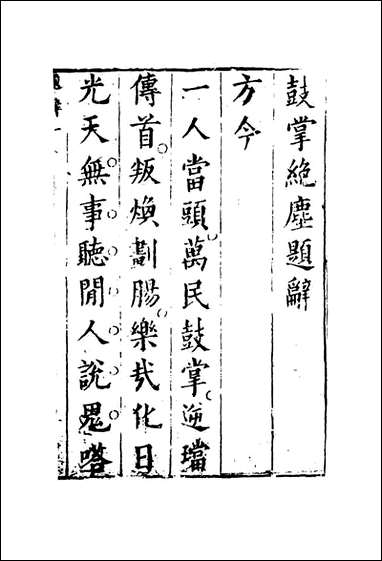 鼓掌絶塵題辭
方今
一人當頭萬民鼓掌逆璫
傳首叛煥劃腸樂哉化日
光天無事聽閒人說鬼嗒
題辭一